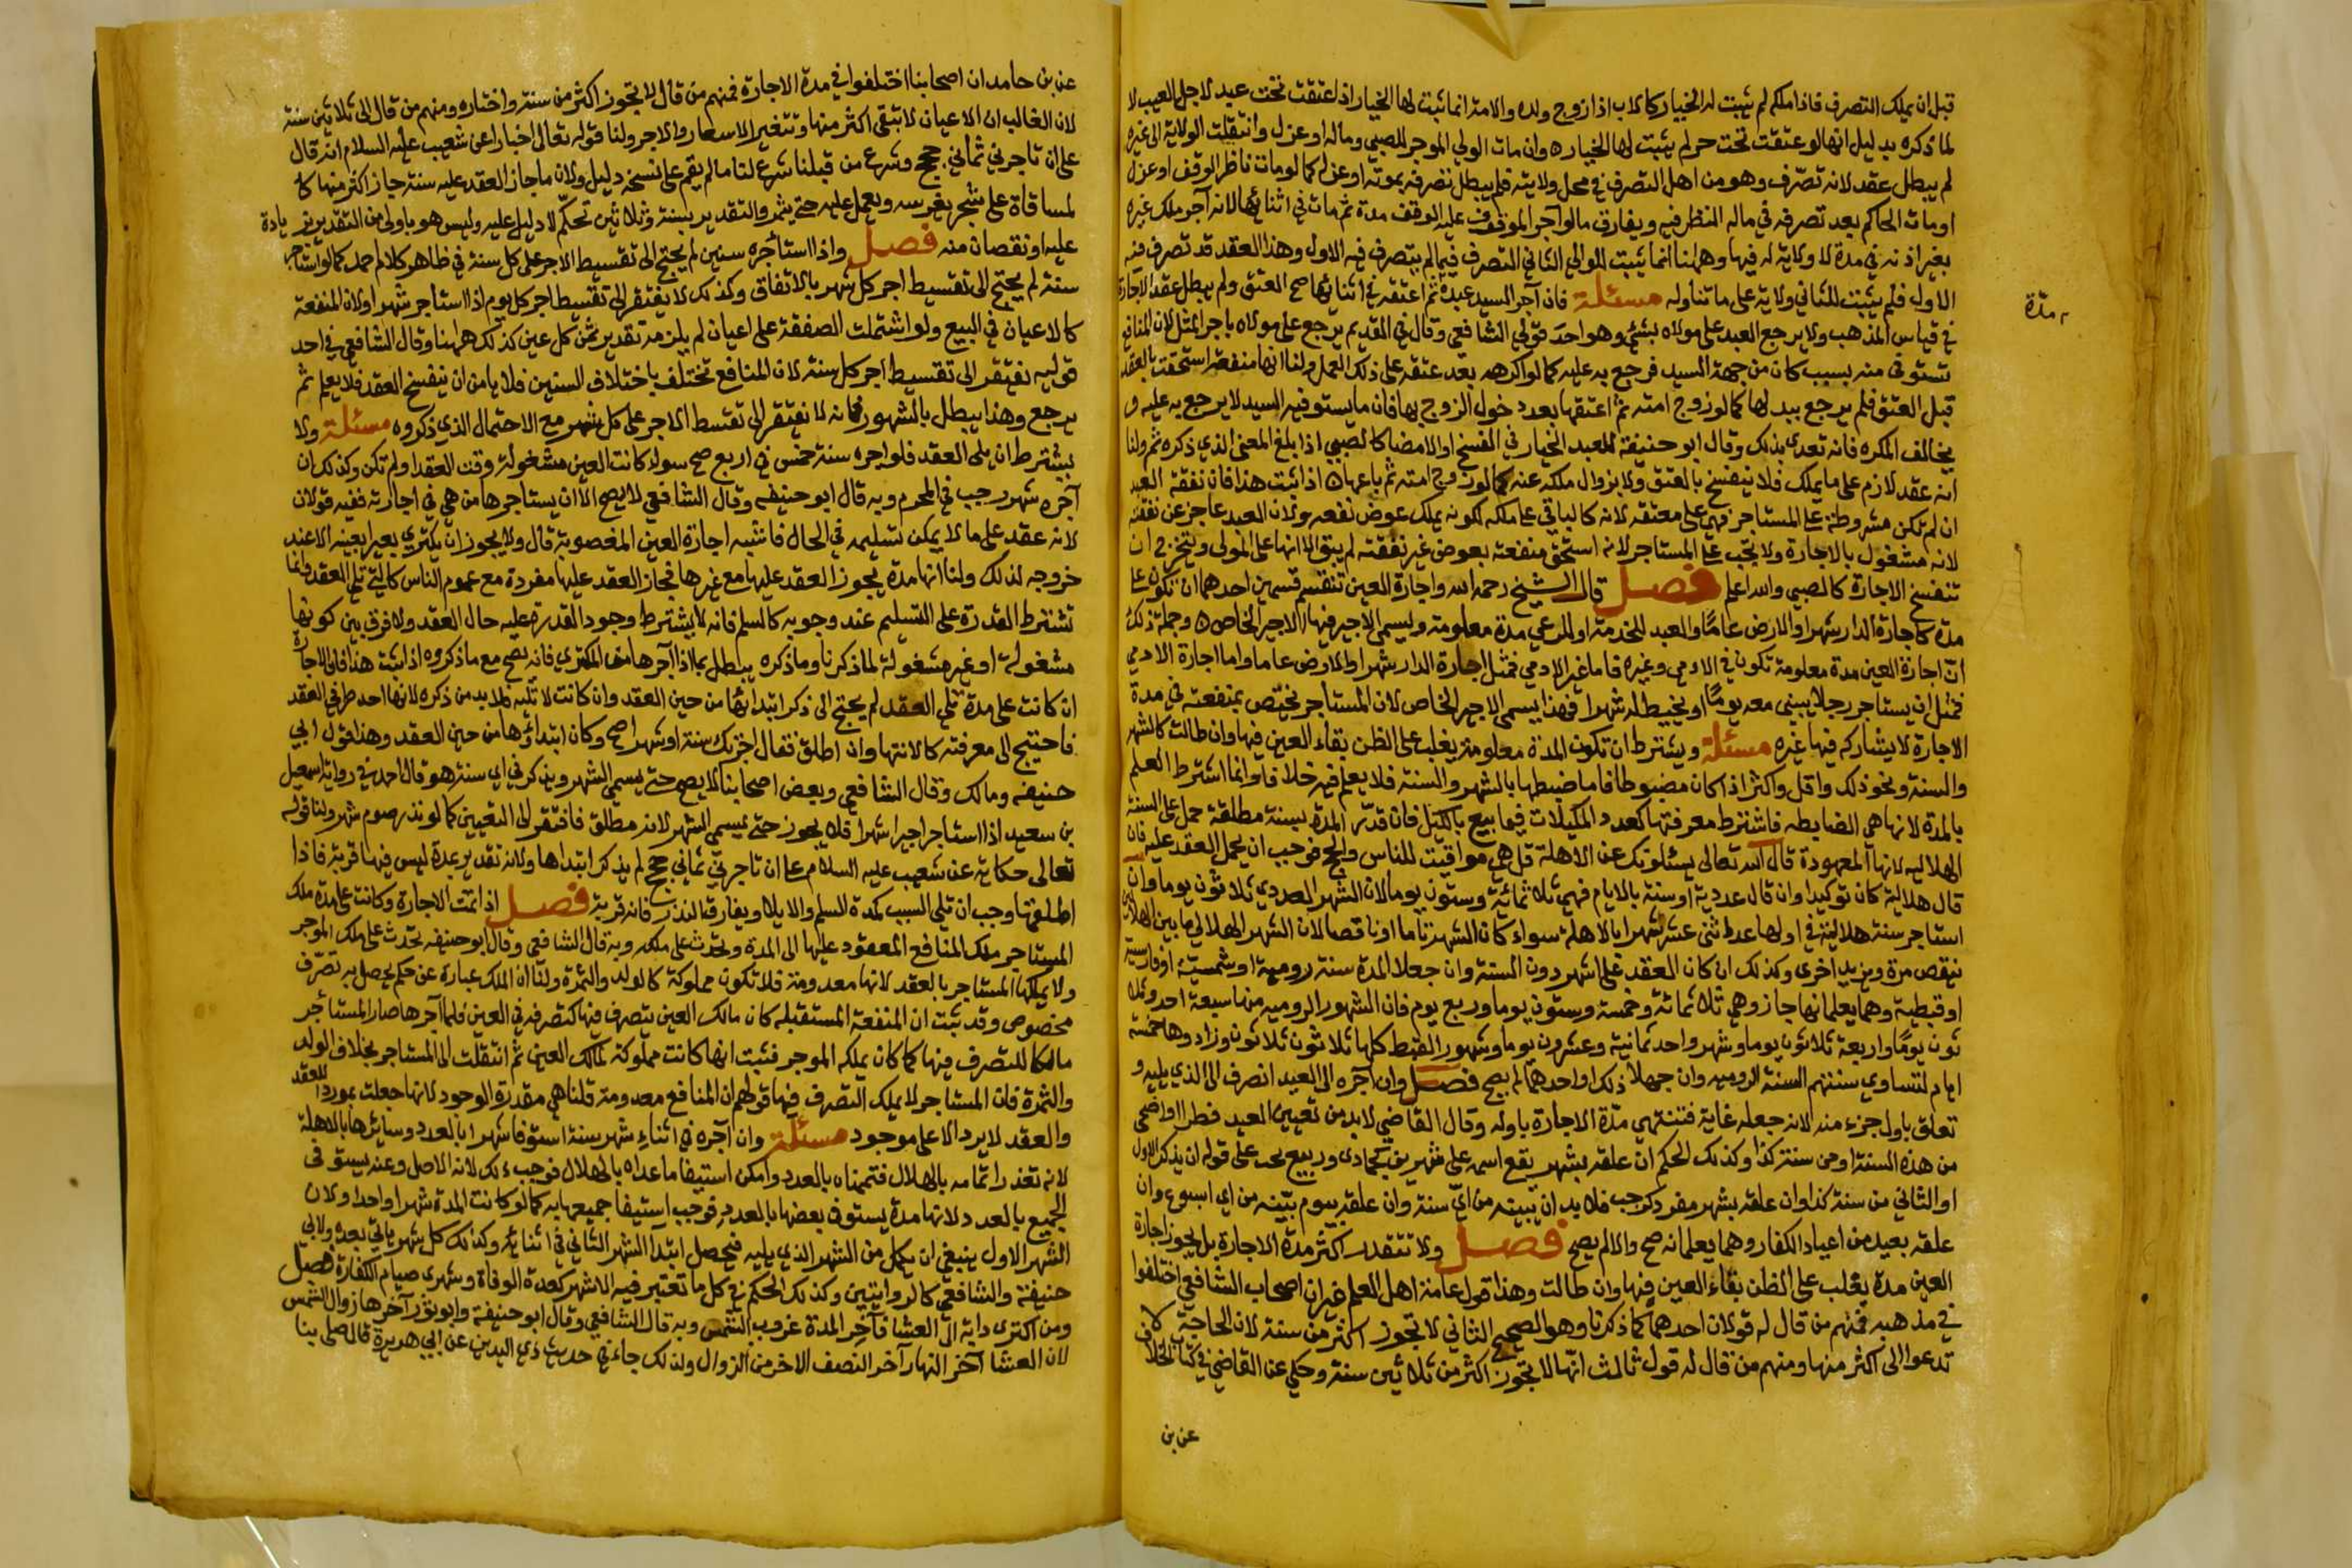 قبل ان يملك التصرف فاذا ملكه لم يثبت له الخيار كالاب اذا زوج ولده والامة انما ثبت لها الخيار اذا اعتقت تحت عبد لاجل العيب لا
لما ذكره بدليل انها لو عتقت تحت حر لم يثبت لها الخيار ه وان مات الولي الموجر للصبي وماله او عزل وانتقلت الولاية الى غيره
لم يبطل عقده لانه تصرف وهو من اهل التصرف في محل ولايته فلم يبطل تصرفه بموته او عزله كما لو مات ناظر الوقف او عزل
او مات الحاكم بعد تصرفه في ماله النظر فيه ويفارق ما لو آجر الموقوف عليه الوقف مدة ثم مات في اثنائها لانه آجر ملك غيره
بغير اذنه في مدة لا ولاية له فيها وههنا انما يثبت للوالي الثاني التصرف فيما لم يتصرف فيه الاول وهذا العقد قد تصرف فيه
الاول فلم يثبت للثاني ولاية على ما تناوله مسئلة فان آجر السيد عبده ثم اعتقه في اثنائها صح العتق ولم يبطل عقد الاجارة
في قياس المذهب ولا يرجع العبد على مولاه بشيء وهو احد قولي الشافعي وقال في القديم يرجع على مولاه باجر المثل لان المنافع
تستوفى منه بسبب كان من جهة السيد فرجع به عليه كما لو اكرهه بعد عتقه على ذلك العمل ولنا انها منفعة استحقت بالعقد
قبل العتق فلم يرجع ببدلها كما لو زوج امته ثم اعتقها بعد دخول الزوج بها فان ما يستوفيه السيد لا يرجع به عليه و
يخالف المكره فانه تعدى بذلك وقال ابو حنيفة للعبد الخيار في الفسخ او الامضا كالصبي اذا بلغ المعنى الذي ذكره ثم ولنا
انه عقد لازم على ما يملك فلا ينفسخ بالعتق ولا بزوال ملكه عنه كما لو زوج امته ثم باعها ه اذا ثبت هذا فان نفقة العبد
ان لم تكن مشروطة على المستاجر فهي على معتقه لانه كالباقي على ملكه لكونه يملك عوض نفعه ولان العبد عاجز عن نفقته
لانه مشغول بالاجارة ولا تجب على المستاجر لانه استحق منفعته بعوض غير نفقته لم يبق الا انها على المولى ويتخرج ان
تنفسخ الاجارة كالصبي والله اعلم فصل قال الشيخ رحمه الله واجارة العين تنقسم قسمين احدهما ان تكون على
مدة كاجارة الدار شهرا والارض عاما والعبد للخدمة او للرعي مدة معلومة وليسمى الاجير فيها الاجير الخاص ه وجملة ذلك
ان اجارة العين مدة معلومة تكون في الادمي وغيره فاما غير الادمي فمثل اجارة الدار شهرا والارض عاما واما اجارة الادمي
فمثل ان يستاجر رجلا يبني معه يوما او يخيط له شهرا فهذا يسمى الاجير الخاص لان المستاجر يختص بمنفعته في مدة
الاجارة لا يشاركه فيها غيره مسئلة ويشترط ان تكون المدة معلومة يغلب على الظن بقاء العين فيها وان طالت كالشهر
والسنة ونحو ذلك واقل واكثر اذا كان مضبوطا فاما ضبطها بالشهر والسنة فلا يعلم فيه خلافا وانما اشترط العلم
بالمدة لانها هي الضابطه فاشترط معرفتها كعدد المكيلات فيما بيع بالكيل فان قدر المدة بسنة مطلقة حمل على السنة
الهلاليه لانها المعهودة قال الله تعالى يسئلونك عن الاهلة قل هي مواقيت للناس والحج فوجب ان يحمل العقد عليه فان
قال هلالية كان توكيدا وان قال عددية او سنة بالايام فهي ثلاثمائة وستون يوما لان الشهر العددي ثلاثون يوما وان
استاجر سنة هلالية في اولها عد اثني عشر شهرا بالاهلة سواء كان الشهر تاما او ناقصا لان الشهر الهلالي ما بين الهلالين
ينقص مرة ويزيد اخرى وكذلك ان كان العقد على اشهر دون السنة وان جعلا المدة سنة رومية او شمسية او فارسية
او قبطية وهما يعلمانها جاز وهي ثلاثمائة وخمسة وستون يوما وربع يوم فان الشهور الرومية منها سبعة احد وثلا
ثون يوما واربعة ثلاثون يوما وشهر واحد ثمانية وعشرون يوما وشهور القبط كلها ثلاثون ثلاثون وزادوها خمسة
ايام لتساوي سنتهم السنة الرومية وان جهلا ذلك او احدهما لم يصح فصل وان آجره الى العيد انصرف الى الذي يليه و
تعلق باول جزء منه لانه جعله غاية فتنتهي مدة الاجارة باوله وقال القاضي لا بد من تعيين العيد فطرا او اضحى
من هذه السنة او من سنة كذا وكذلك الحكم ان علقه بشهر يقع اسمه على شهرين كجمادى وربيع يجب على قوله ان يذكر الاول
او الثاني من سنة كذا وان علقه بشهر مفرد كرجب فلا بد ان يبينه من اي سنة وان علقه بيوم بينه من اي اسبوع وان
علقه بعيد من اعياد الكفار وهما يعلمانه صح والا لم يصح فصل ولا تتقدر اكثر مدة الاجارة بل يجوز اجارة
العين مدة يغلب على الظن بقاء العين فيها وان طالت وهذا قول عامة اهل العلم غير ان اصحاب الشافعي اختلفوا
في مذهبه فمنهم من قال له قولان احدهما كما ذكرنا وهو الصحيح الثاني لا تجوز اكثر من سنة لان الحاجة لا
تدعوا الى اكثر منها ومنهم من قال له قول ثالث انها لا تجوز اكثر من ثلاثين سنة وحكي عن القاضي في كتاب الخلاف
عن بن
مدة
عن بن حامد ان اصحابنا اختلفوا في مدة الاجارة فمنهم من قال لا تجوز اكثر من سنة واختاره ومنهم من قال الى ثلاثين سنة
لان الغالب ان الاعيان لا تبقى اكثر منها وتتغير الاسعار والاجر ولنا قوله تعالى اخبارا عن شعيب عليه السلام انه قال
على ان تاجرني ثماني حجج وشرع من قبلنا شرع لنا ما لم يقم على نسخه دليل ولان ما جاز العقد عليه سنة جاز اكثر منها كا
لمساقاة على شجر يغرسه ويعمل عليه حتى يثمر والتقدير بسنة وثلاثين تحكم لا دليل عليه وليس هو باولى من التقدير بزيادة
عليه او نقصان منه فصل واذا استأجره سنين لم يحتج الى تقسيط الاجر على كل سنة في ظاهر كلام احمد كما لو استاجر
سنة لم يحتج الى تقسيط اجر كل شهر بالاتفاق وكذلك لا يفتقر الى تقسيط اجر كل يوم اذا استاجر شهرا ولان المنفعة
كالاعيان في البيع ولو اشتملت الصفقة على اعيان لم يلزمه تقدير ثمن كل عين كذلك ههنا وقال الشافعي في احد
قوليه تفتقر الى تقسيط اجر كل سنة لان المنافع تختلف باختلاف السنين فلا يامن ان ينفسخ العقد فلا يعلم ثم
يرجع وهذا يبطل بالشهور فانه لا تفتقر الى تقسيط الاجر على كل شهر مع الاحتمال الذي ذكروه مسئلة ولا
يشترط ان يلي العقد فلو اجره سنة خمس في اربع صح سواء كانت العين مشغولة وقت العقد او لم تكن وكذلك ان
آجره شهر رجب في المحرم وبه قال ابو حنيفه وقال الشافعي لا يصح الا ان يستاجرها من هي في اجارته ففيه قولان
لانه عقد على ما لا يمكن تسليمه في الحال فاشبه اجارة العين المغصوبة قال ولا يجوز ان يكتري بعيرا بعينه الا عند
خروجه لذلك ولنا انها مدة يجوز العقد عليها مع غيرها فجاز العقد عليها مفردة مع عموم الناس كالتي تلي العقد وانما
تشترط القدرة على التسليم عند وجوبه كالسلم فانه لا يشترط وجود القدرة عليه حال العقد ولا فرق بين كونها
مشغولة او غير مشغولة لما ذكرنا وما ذكره يبطل بما اذا آجرها من المكتري فانه يصح مع ما ذكروه اذا ثبت هذا فان الاجارة
ان كانت على مدة تلي العقد لم يحتج الى ذكر ابتدائها من حين العقد وان كانت لا تليه فلا بد من ذكره لانها احد طرفي العقد
فاحتيج الى معرفته كالانتها وان اطلق فقال اجرتك سنة او شهرا صح وكان ابتداؤها من حين العقد وهذا قول ابي
حنيفه ومالك وقال الشافعي وبعض اصحابنا لا يصح حتى يسمي الشهر ويذكر في اي سنة هو قال احمد في رواية اسمعيل
بن سعيد اذا استاجر اجيرا شهرا فلا يجوز حتى يسمي الشهر لانه مطلق فافتقر الى التعيين كما لو نذر صوم شهر ولنا قوله
تعالى حكاية عن شعيب عليه السلام على ان تاجرني ثماني حجج لم يذكر ابتداها ولانه تقدير بمدة ليس فيها قربة فاذا
اطلقها وجب ان تلي السبب كمدة السلم والايلا ويفارق النذر فانه قربة فصل اذا تمت الاجارة وكانت على مدة ملك
المستاجر ملك المنافع المعقود عليها الى المدة وتحدث على ملكه وبه قال الشافعي وقال ابو حنيفه تحدث على ملك الموجر
ولا يملكها المستاجر بالعقد لانها معدومة فلا تكون مملوكة كالولد والثمرة ولنا ان الملك عبارة عن حكم يحصل به تصرف
مخصوص وقد ثبت ان المنفعة المستقبلة كان مالك العين يتصرف فيها كتصرفه في العين فلما آجرها صار المستأجر
مالكا للتصرف فيها كما كان يملكه الموجر فثبت انها كانت مملوكة لمالك العين ثم انتقلت الى المستاجر بخلاف الولد
والثمرة فان المستاجر لا يملك التصرف فيها قولهم ان المنافع معدومة قلنا هي مقدرة الوجود لانها جعلت موردا للعقد
والعقد لا يرد الا على موجود مسئلة وان آجره في اثناء شهر سنة استوفا شهرا بالعدد وسائرها بالاهلة
لانه تعذر اتمامه بالهلال فتممناه بالعدد وامكن استيفا ما عداه بالهلال فوجب ذلك لانه الاصل وعنه يستوفى
الجميع بالعدد لانها مدة يستوفى بعضها بالعدد فوجب استيفا جميعها به كما لو كانت المدة شهرا واحدا ولان
الشهر الاول ينبغي ان يكمل من الشهر الذي يليه فيحصل ابتدا الشهر الثاني في اثنائه وكذلك كل شهر ياتي بعده ولابي
حنيفة والشافعي كالروايتين وكذلك الحكم في كل ما تعتبر فيه الاشهر كعدة الوفاة وشهرى صيام الكفارة فصل
ومن اكترى دابة الى العشا فآخر المدة غروب الشمس وبه قال الشافعي وقال ابو حنيفة وابو ثور آخرها زوال الشمس
لان العشا آخر النهار آخر النصف الاخر من الزوال ولذلك جاء في حديث ذي اليدين عن ابي هريرة قال صلى بنا